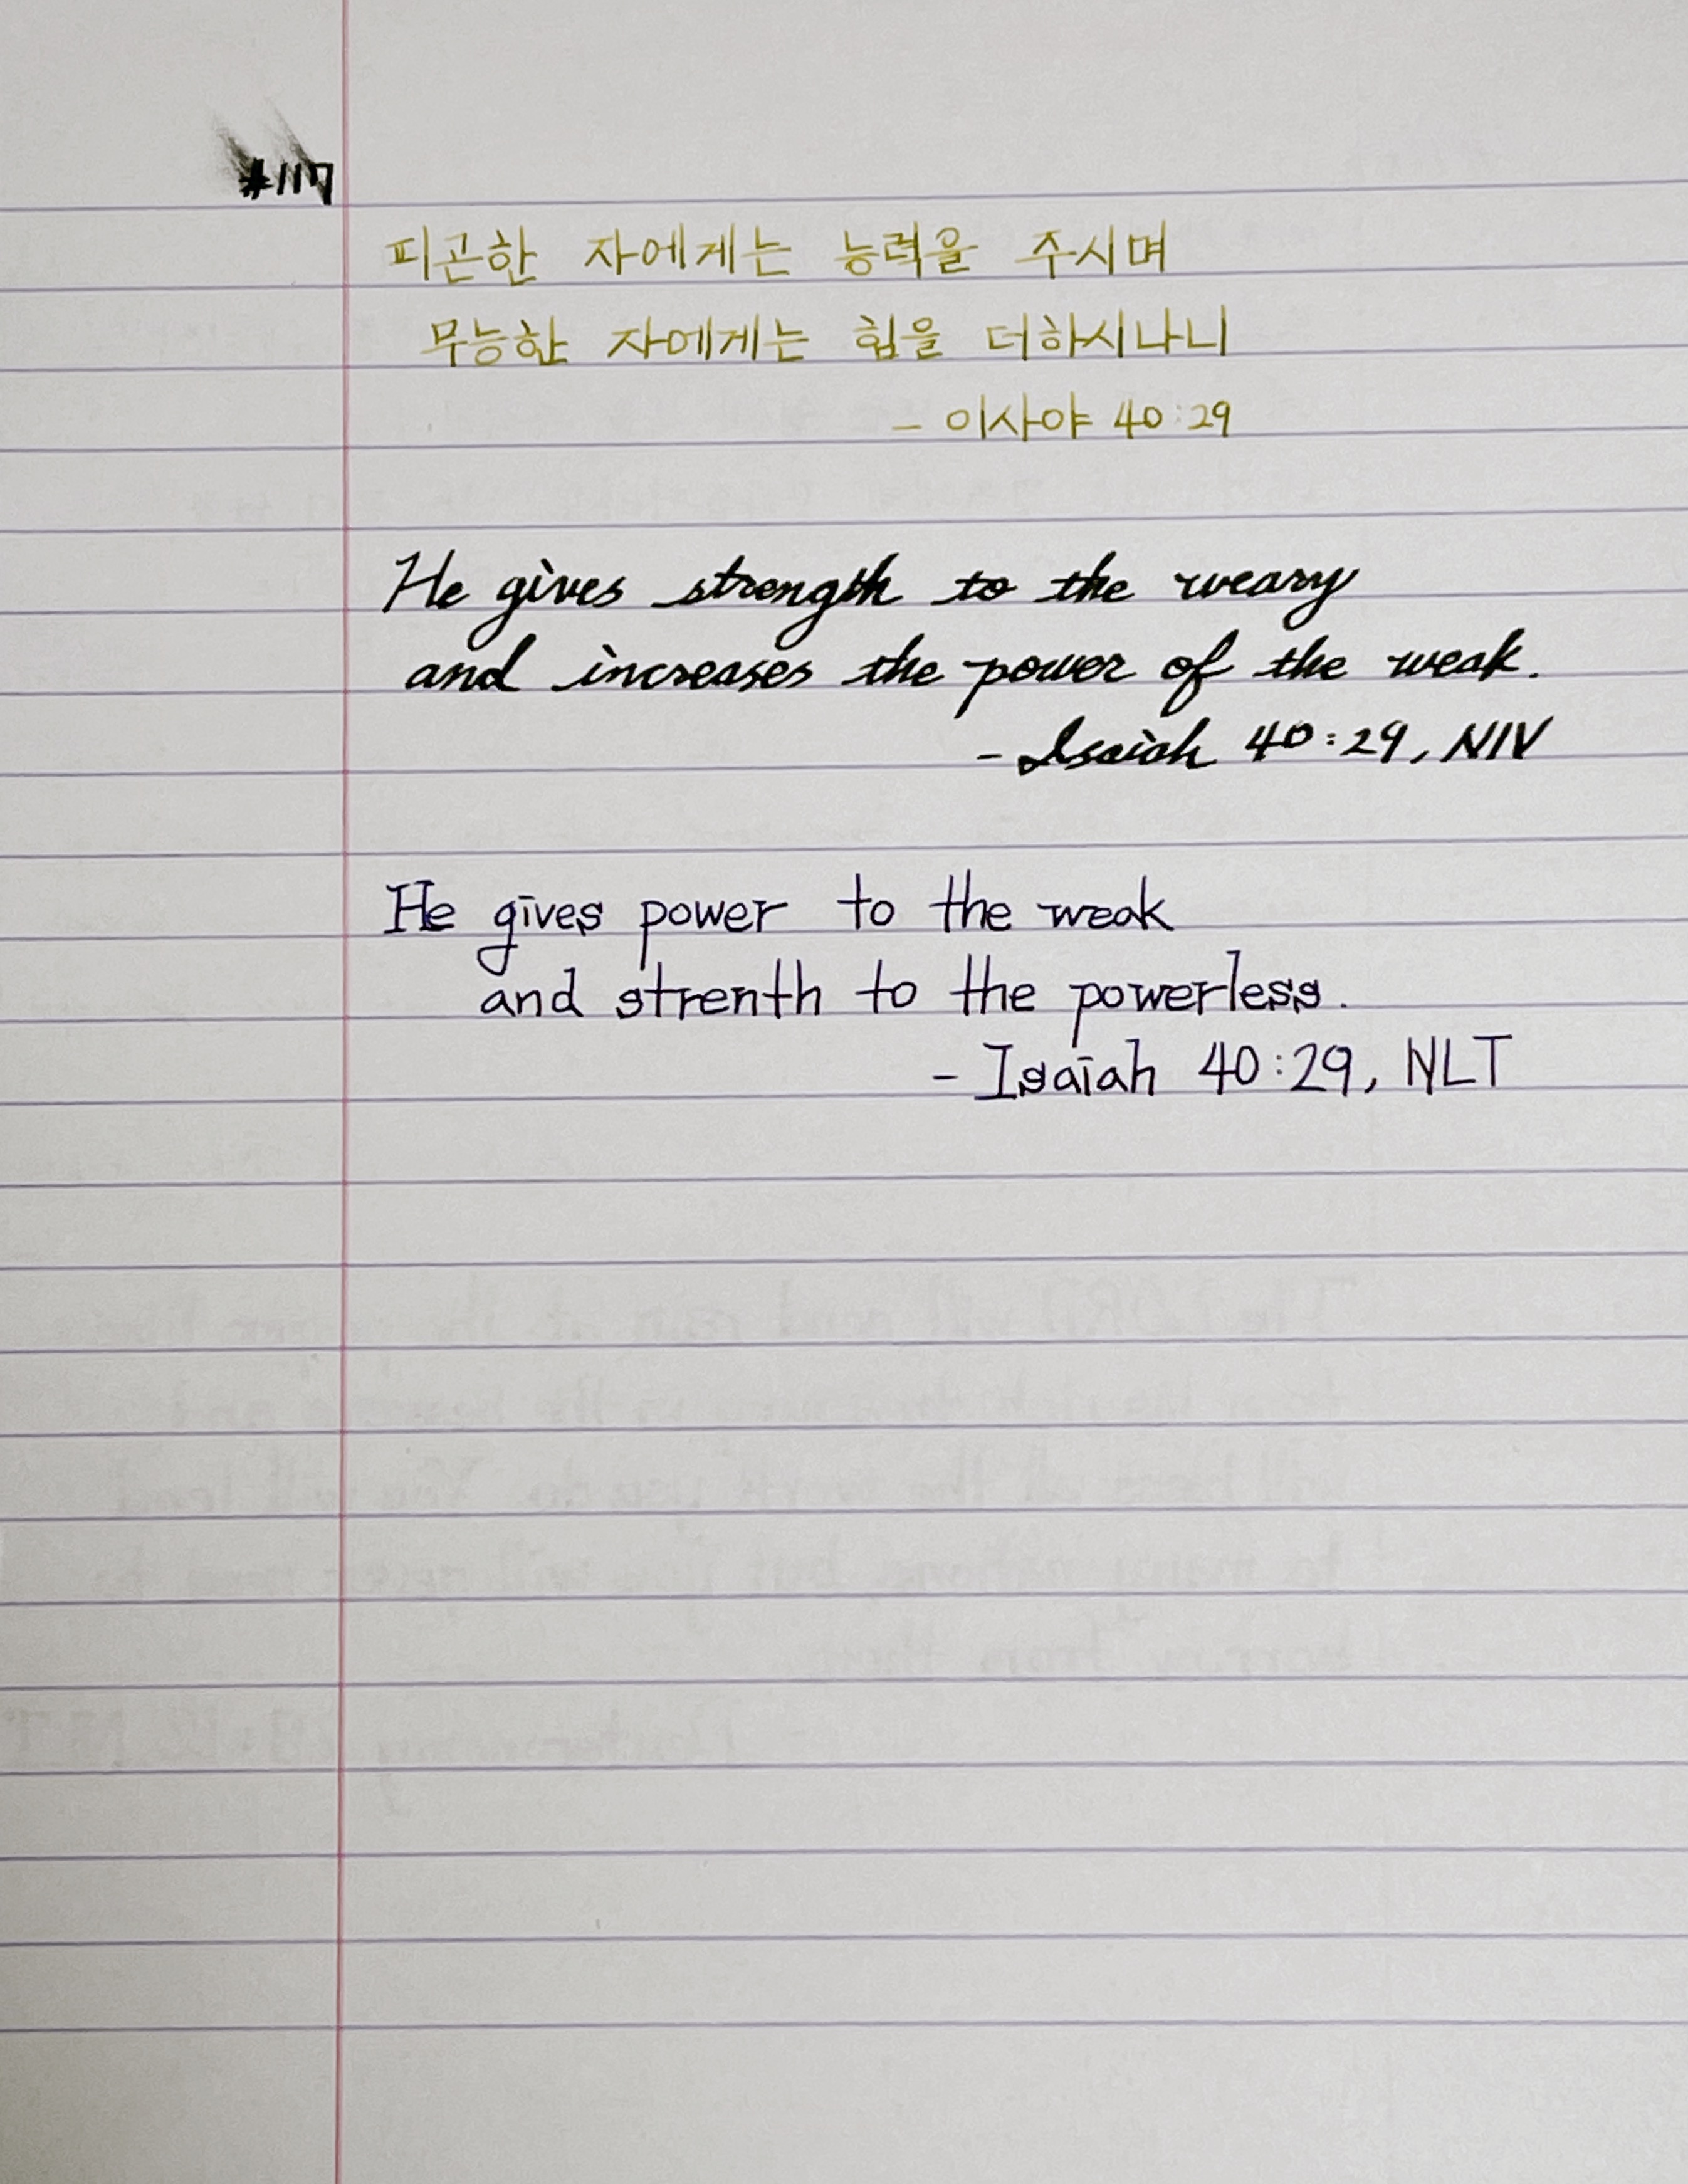 #117
피곤한 자에게는 능력을 주시며
무능한 자에게는 힘을 더하시나니
- 이사야 40:29
He gives strength to the weary
and increases the power of the weak.
- Isaiah 40:29, NIV
He gives power to the weak
and strenth to the powerless.
- Isaiah 40:29, NLT